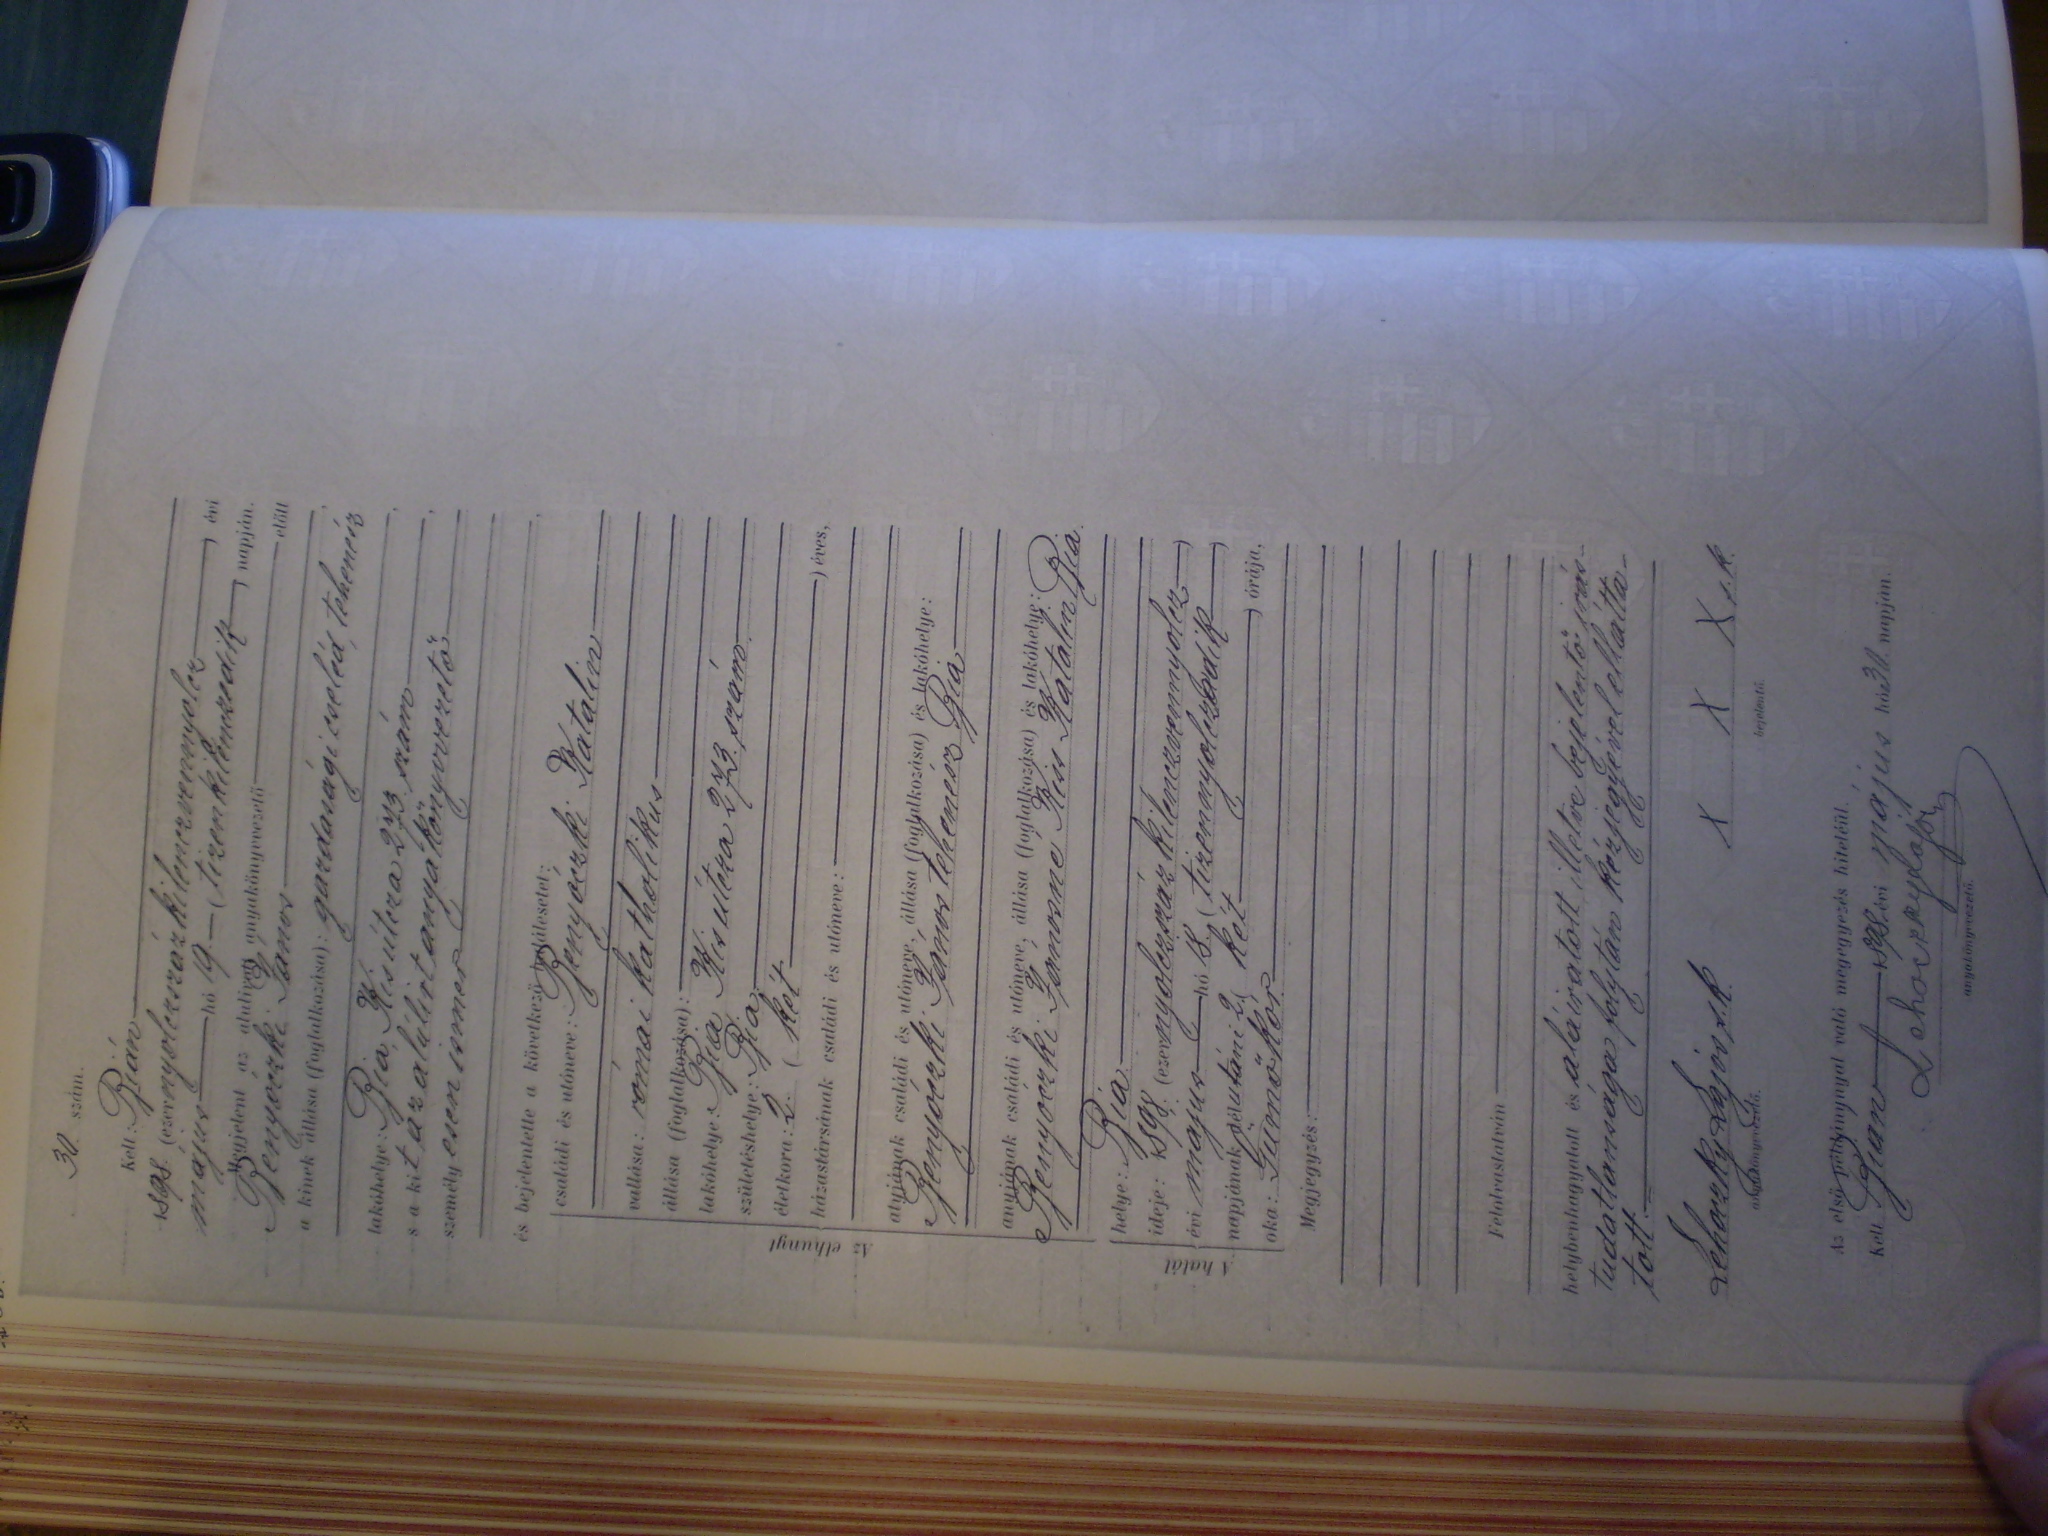 30. szám.
Kelt: Bián
1898. (ezernyolczszázkilenczvennyolcz) évi
május hó 19. (tizenkilenczedik) napján.
Megjelent az alulirott anyakönyvvezető előtt
Benyóczki János
a kinek állása (foglalkozása): gazdasági cseléd, tehenész,
lakóhelye: Bia, Kis útcza 273. szám,
s a kit az alulirt anyakönyvvezető
személyesen ismer,
és bejelentette a következő halálesetet:
Az elhunyt
családi és utóneve: Benyóczki Katalin
vallása: római katholikus
állása (foglalkozása):
lakóhelye: Bia Kis útcza 273. szám
születéshelye: Bia
életkora: 2. (két) éves,
házastársának családi és utóneve:
atyjának családi és utóneve, állása (foglalkozása) és lakóhelye:
Benyóczki János tehenész Bia
anyjának családi és utóneve, állása (foglalkozása) és lakóhelye:
Benyóczki Jánosné Kiss Katalin Bia.
A halál
helye: Bia
ideje: 1898. (ezernyolczszázkilenczvennyolcz)
évi május hó 18. (tizennyolczadik)
napjának délutáni 2. (két) órája,
oka: Gümőkór
Megjegyzés:
Felolvastatván
helybenhagyatott és aláiratott illetve bejelentő irás-
tudatlansága folytán kézjegyével elláttа-
tott.
Lehoczky Lajos s.k. X X X s.k.
anyakönyvvezető. bejelentő.
Az első példánynyal való megegyezés hiteléül.
Kelt Bián 1898. évi május hó 31. napján.
Lehoczky Lajos
anyakönyvvezető.